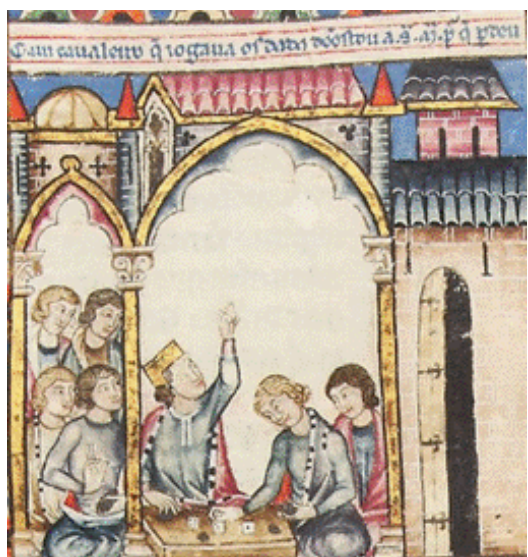 un caualeiro q̃ iogaua os dados dẽostou a.s̃.m̃. p̃ q̃ p̃deu